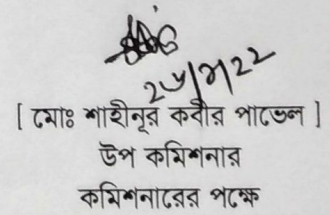 [ মোঃ শাহীনূর কবীর পাভেল ]
উপ কমিশনার
কমিশনারের পক্ষে